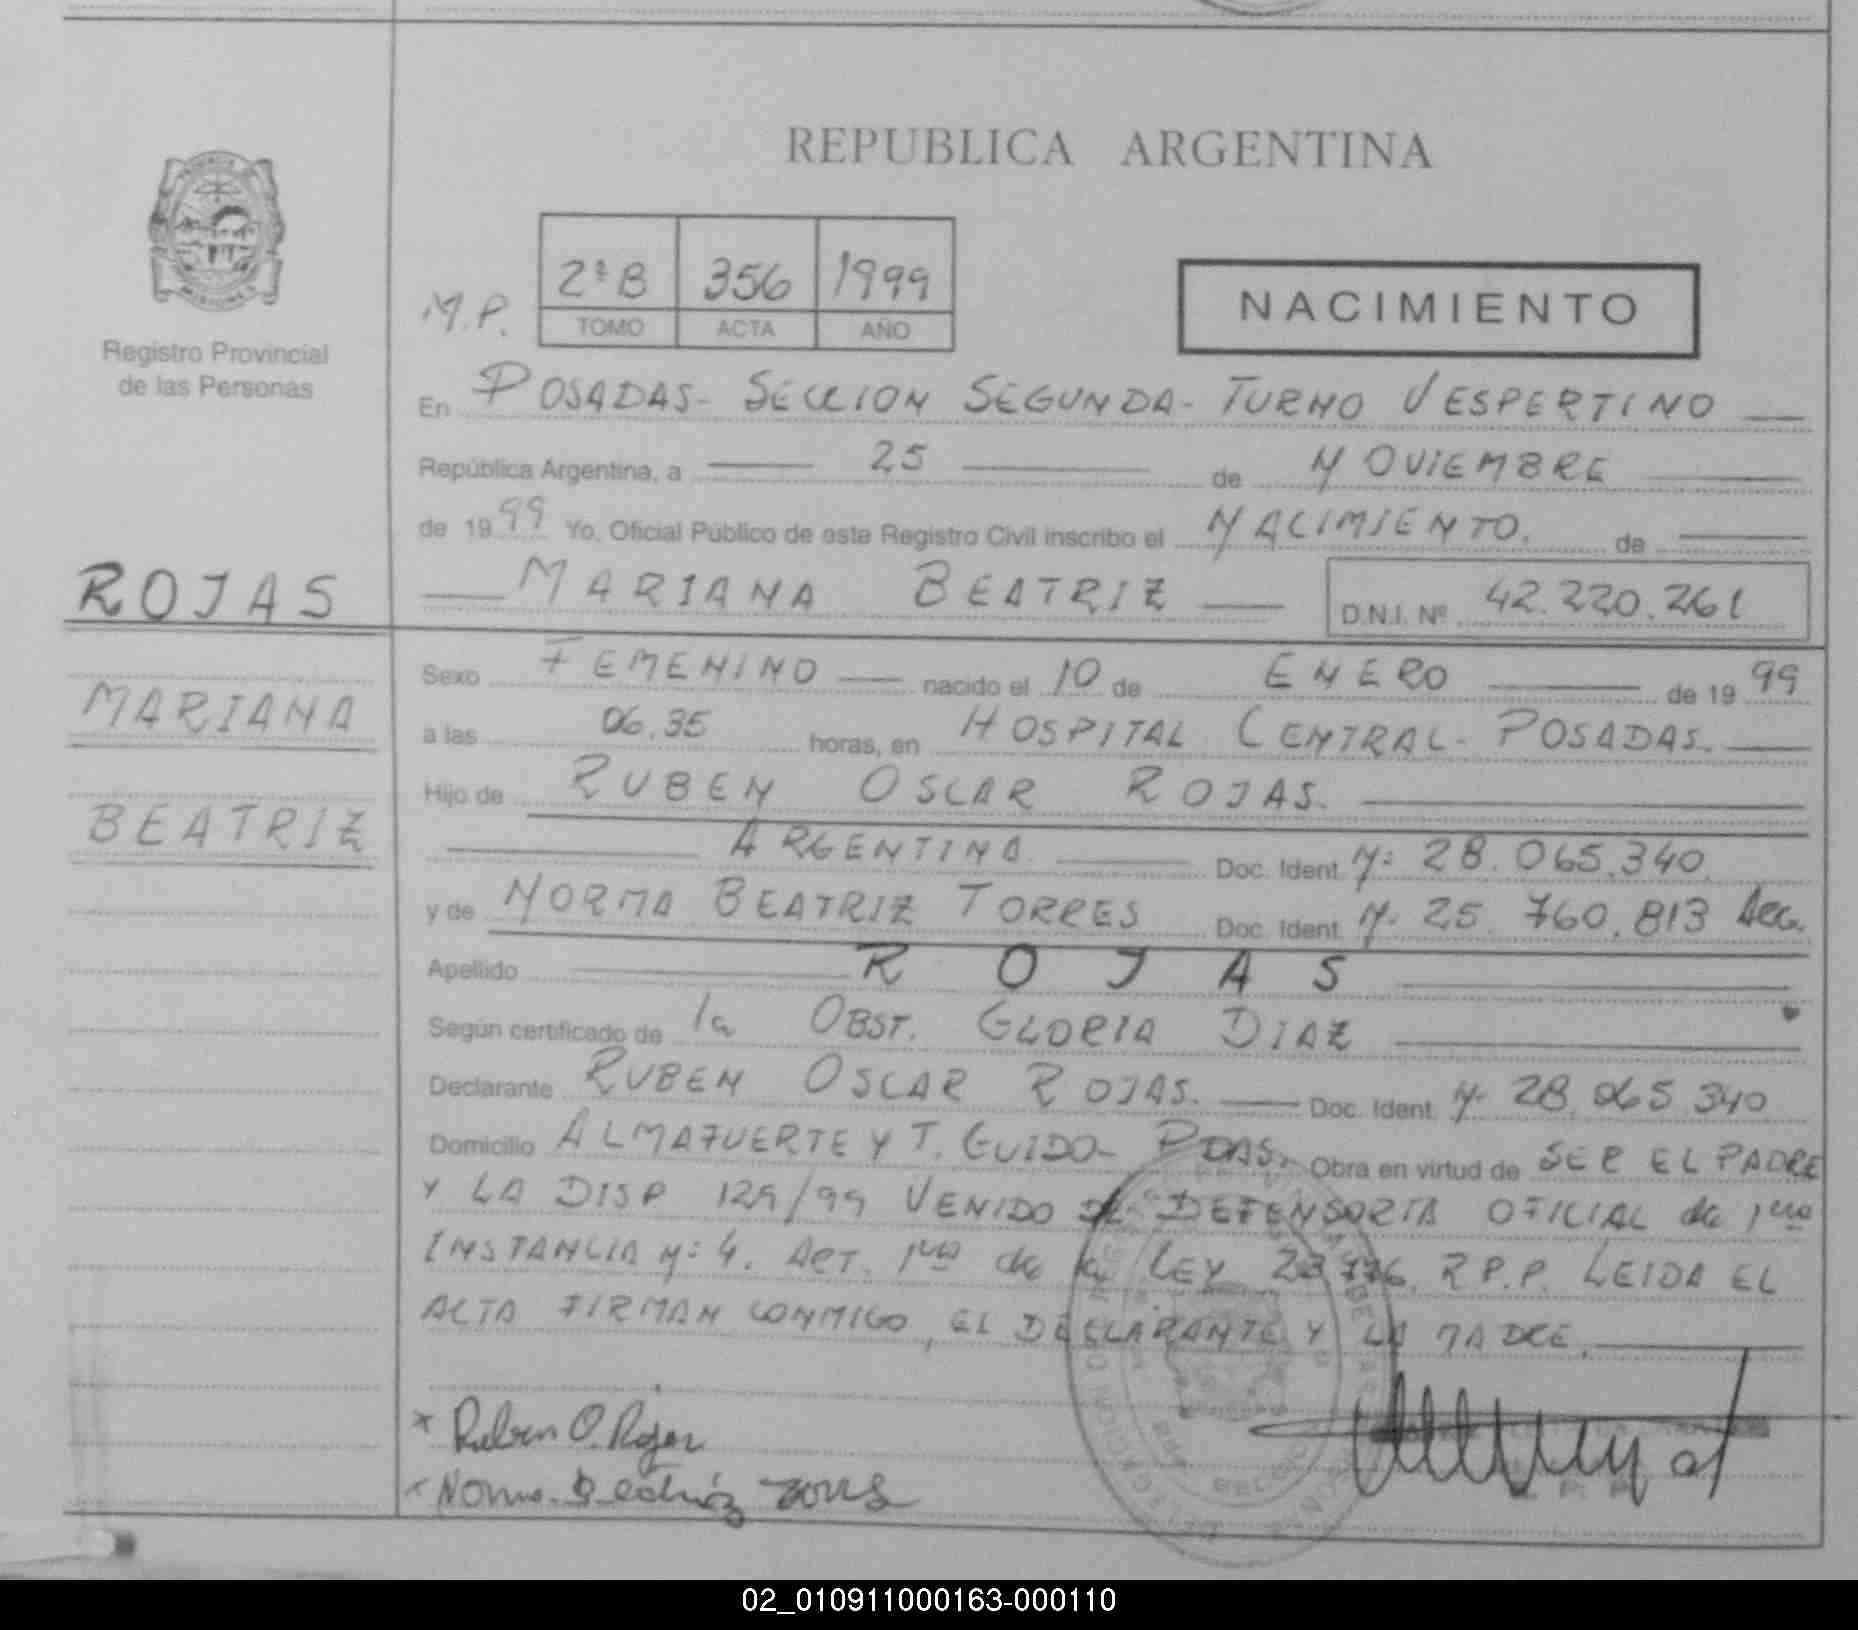 REPUBLICA ARGENTINA
PROVINCIA
MISIONES
Registro Provincial
de las Personas
M.P.
2ª B 356 1999
TOMO ACTA AÑO
NACIMIENTO
En POSADAS - SECCION SEGUNDA - TURNO VESPERTINO
República Argentina, a 25 de NOVIEMBRE
de 1999 Yo, Oficial Público de este Registro Civil inscribo el NACIMIENTO. de
ROJAS
MARIANA BEATRIZ D.N.I. Nº 42.220.261
MARIANA
BEATRIZ
Sexo FEMENINO nacido el 10 de ENERO de 1999
a las 06.35 horas, en HOSPITAL CENTRAL - POSADAS.
Hijo de RUBEN OSCAR ROJAS.
ARGENTINA. Doc. Ident. Nº 28.065.340
y de NORMA BEATRIZ TORRES Doc. Ident. N. 25.760.813 ARG.
Apellido ROJAS
Según certificado de la OBST. GLORIA DIAZ
Declarante RUBEN OSCAR ROJAS. Doc. Ident. N. 28.065.340
Domicilio ALMAFUERTE Y T. GUIDO - PDAS. Obra en virtud de SER EL PADRE
Y LA DISP 129/99 VENIDO DE DEFENSORIA OFICIAL de 1ra
INSTANCIA Nº 4. ART. 1ro de la LEY 23776. R.P.P. LEIDA EL
ACTA FIRMAN CONMIGO, EL DECLARANTE Y LA MADRE.
x Ruben O. Rojas
x Norma Beatriz Torres
02_010911000163-000110